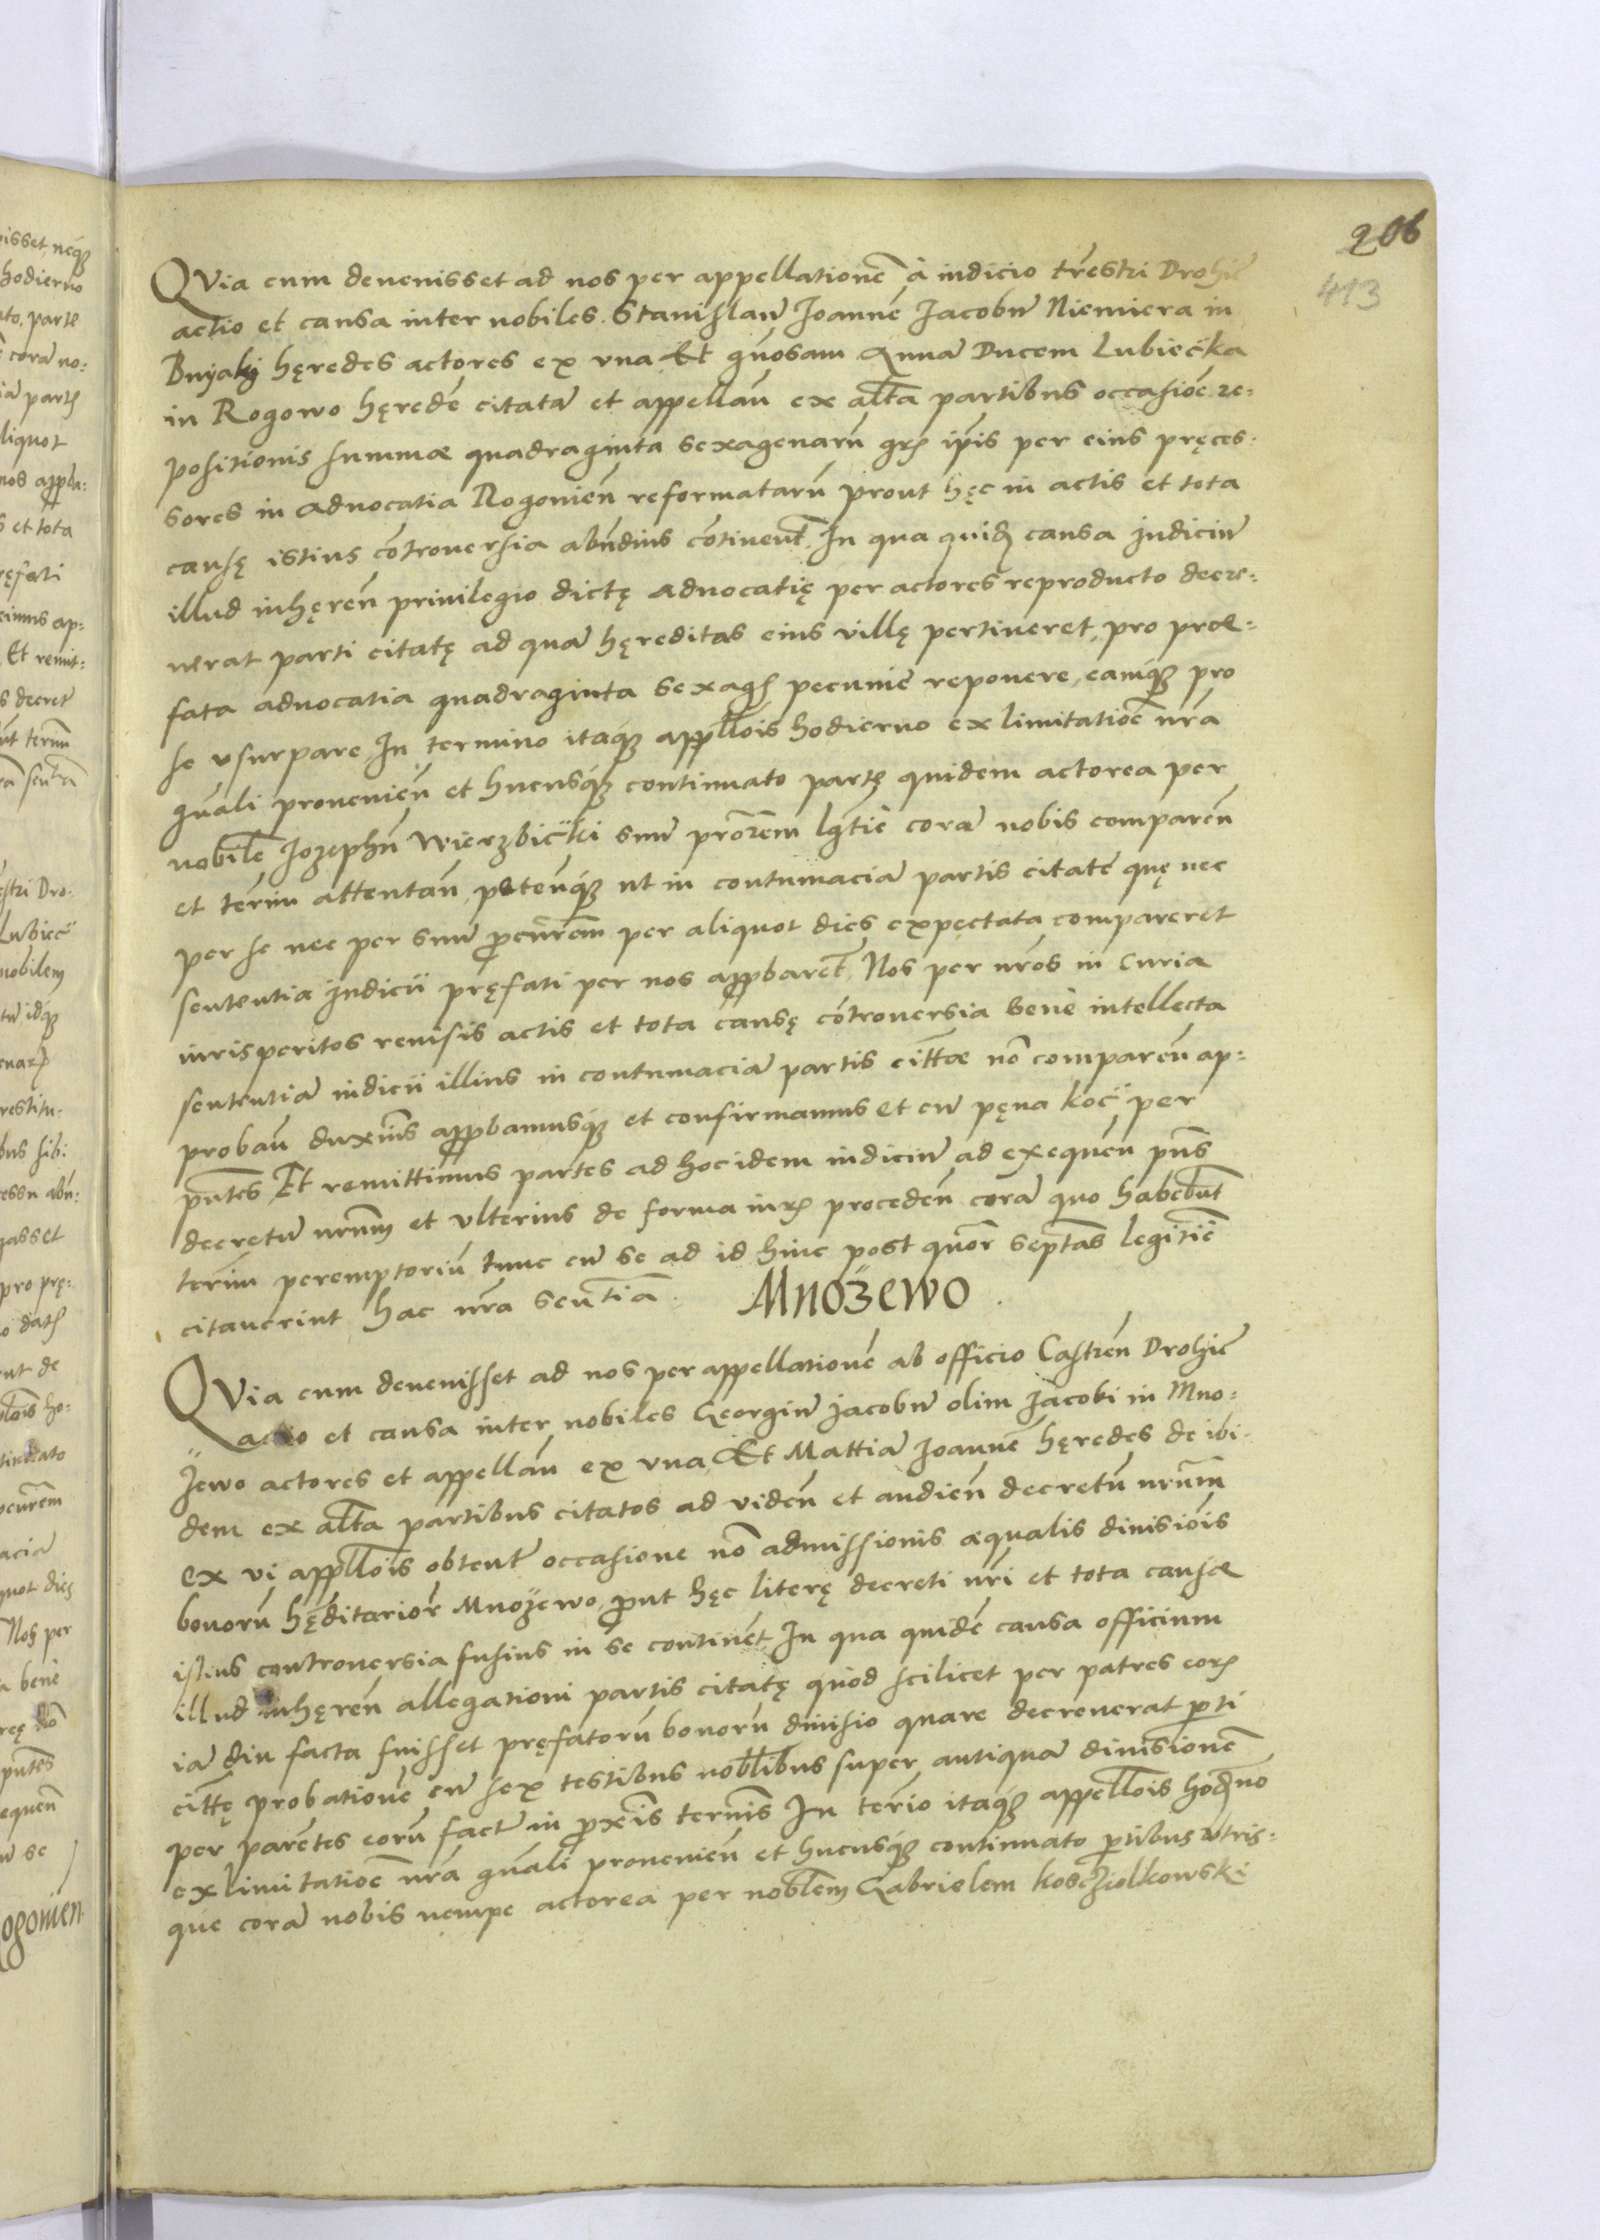 206
413
QVia cum devenisset ad nos per appellationē à iudicio tr̄estri Drohic̄
actio et causa inter nobiles Stanislaū Joannē Jacobū Niemiera in
Buyaky hęredes actores ex vna Et gn̄osam Annā Ducem Lubieczka
in Rogowo hęredē citatā et appellan̄ ex altā partibus occasiōe re-
positionis summæ quadraginta sexagenarū gr̄ ip̄is per eius pręces-
sores in advocatia Rogonien̄ reformatarū prout hęc in actis et tota
causę istius cōtroversia abūdius cōtinent̄ In qua quid̄ causa judiciū
illud inhęren̄ privilegio dictę advocatię per actores reproducto decre-
verat parti citatę ad quā hęreditas eius villę pertineret, pro præ-
fata advocatia quadraginta sexaḡ pecuniē reponere, eamq́ue pro
se vsurpare, In termino itaq́ue appllōis hodierno ex limitatiōe nrā
gn̄ali provenien̄ et hucusq́ue continuato parte quidem actorea per
nobilē Jozephū Wierzbiczki suū prōrem lḡtiē corā nobis comparen̄
et term̄ attentan̄, peten̄q́ue ut in contumaciā partis citatę quę nec
per se nec per suū p̄curēm per aliquot dies expectata compareret
sententia judicii pręfati per nos app̄baret̄, Nos per nr̄os in curia
iurisperitos revisis actis et tota causę cōtroversia bene intellecta
sententiā iudicii illius in contumaciā partis citt̄æ nō comparen̄ ap-
proban̄ duxim̄s app̄bamusq́ue et confirmamus et cū pęna kocz per
pn̄tes Et remittimus partes ad hoc idem iudiciū ad exequen̄ pn̄s
decretū nr̄um et vlterius de forma iur̄ proceden̄ corā quo habebunt̄
term̄ peremptoriū tunc cū se ad id hinc post quōr septās legitiē
citaverint hac nr̄a sen̄tia. Mnożewo.
QVia cum devenisset ad nos per appellationē ab officio Castren̄ Drohic̄
actio et causa inter nobiles Georgiū Jacobū olim Jacobi in Mno-
żewo actores et appellan̄ ex vna Et Mattiā Joannē hęredes de ibi-
dem ex altā partibus citatos ad viden̄ et audien̄ decretū nr̄um
ex vi appllōis obtentū occasione nō admissionis æqualis divisiōis
bonorū hęditariōr Mnożewo, p̄ut hęc literę decreti nr̄i et tota causæ
istius controversia fusius in se continēt In qua quidē causa officium
illud inhęren̄ allegationi partis citatę quod scilicet per patres eor̄
iā diu facta fuisset pręfatorū bonorū divisio quare decreverat p̄ti
citt̄ę probationē cū sex testibus noblibus super antiquā divisionē
per parētes eorū factā in p̄xiīs term̄is In termīo itaq́ue appellōis hod̄no
ex limitatiōe nr̄a gn̄ali provenien̄ et hucusq́ue continuato p̄tibus utris-
que corā nobis nempe actorea per noblem Gabrielem Kosczżiolkowski